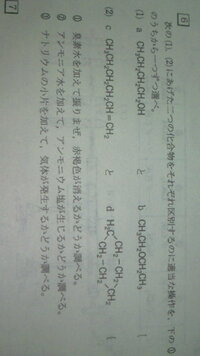 6 次の(1), (2)にあげた二つの化合物をそれぞれ区別するのに適当な操作を, 下の①
のうちから一つずつ選べ。
(1) a CH₃CH₂CH₂CH₂OH と b CH₃CH₂OCH₂CH₃
(2) c CH₃CH₂CH₂CH₂CH=CH₂ と d H₂C CH₂-CH₂ CH₂-CH₂ CH₂
① 臭素水を加えて振りまぜ, 赤褐色が消えるかどうか調べる。
② アンモニア水を加えて, アンモニウム塩が生じるかどうか調べる。
③ ナトリウムの小片を加えて, 気体が発生するかどうか調べる。
7